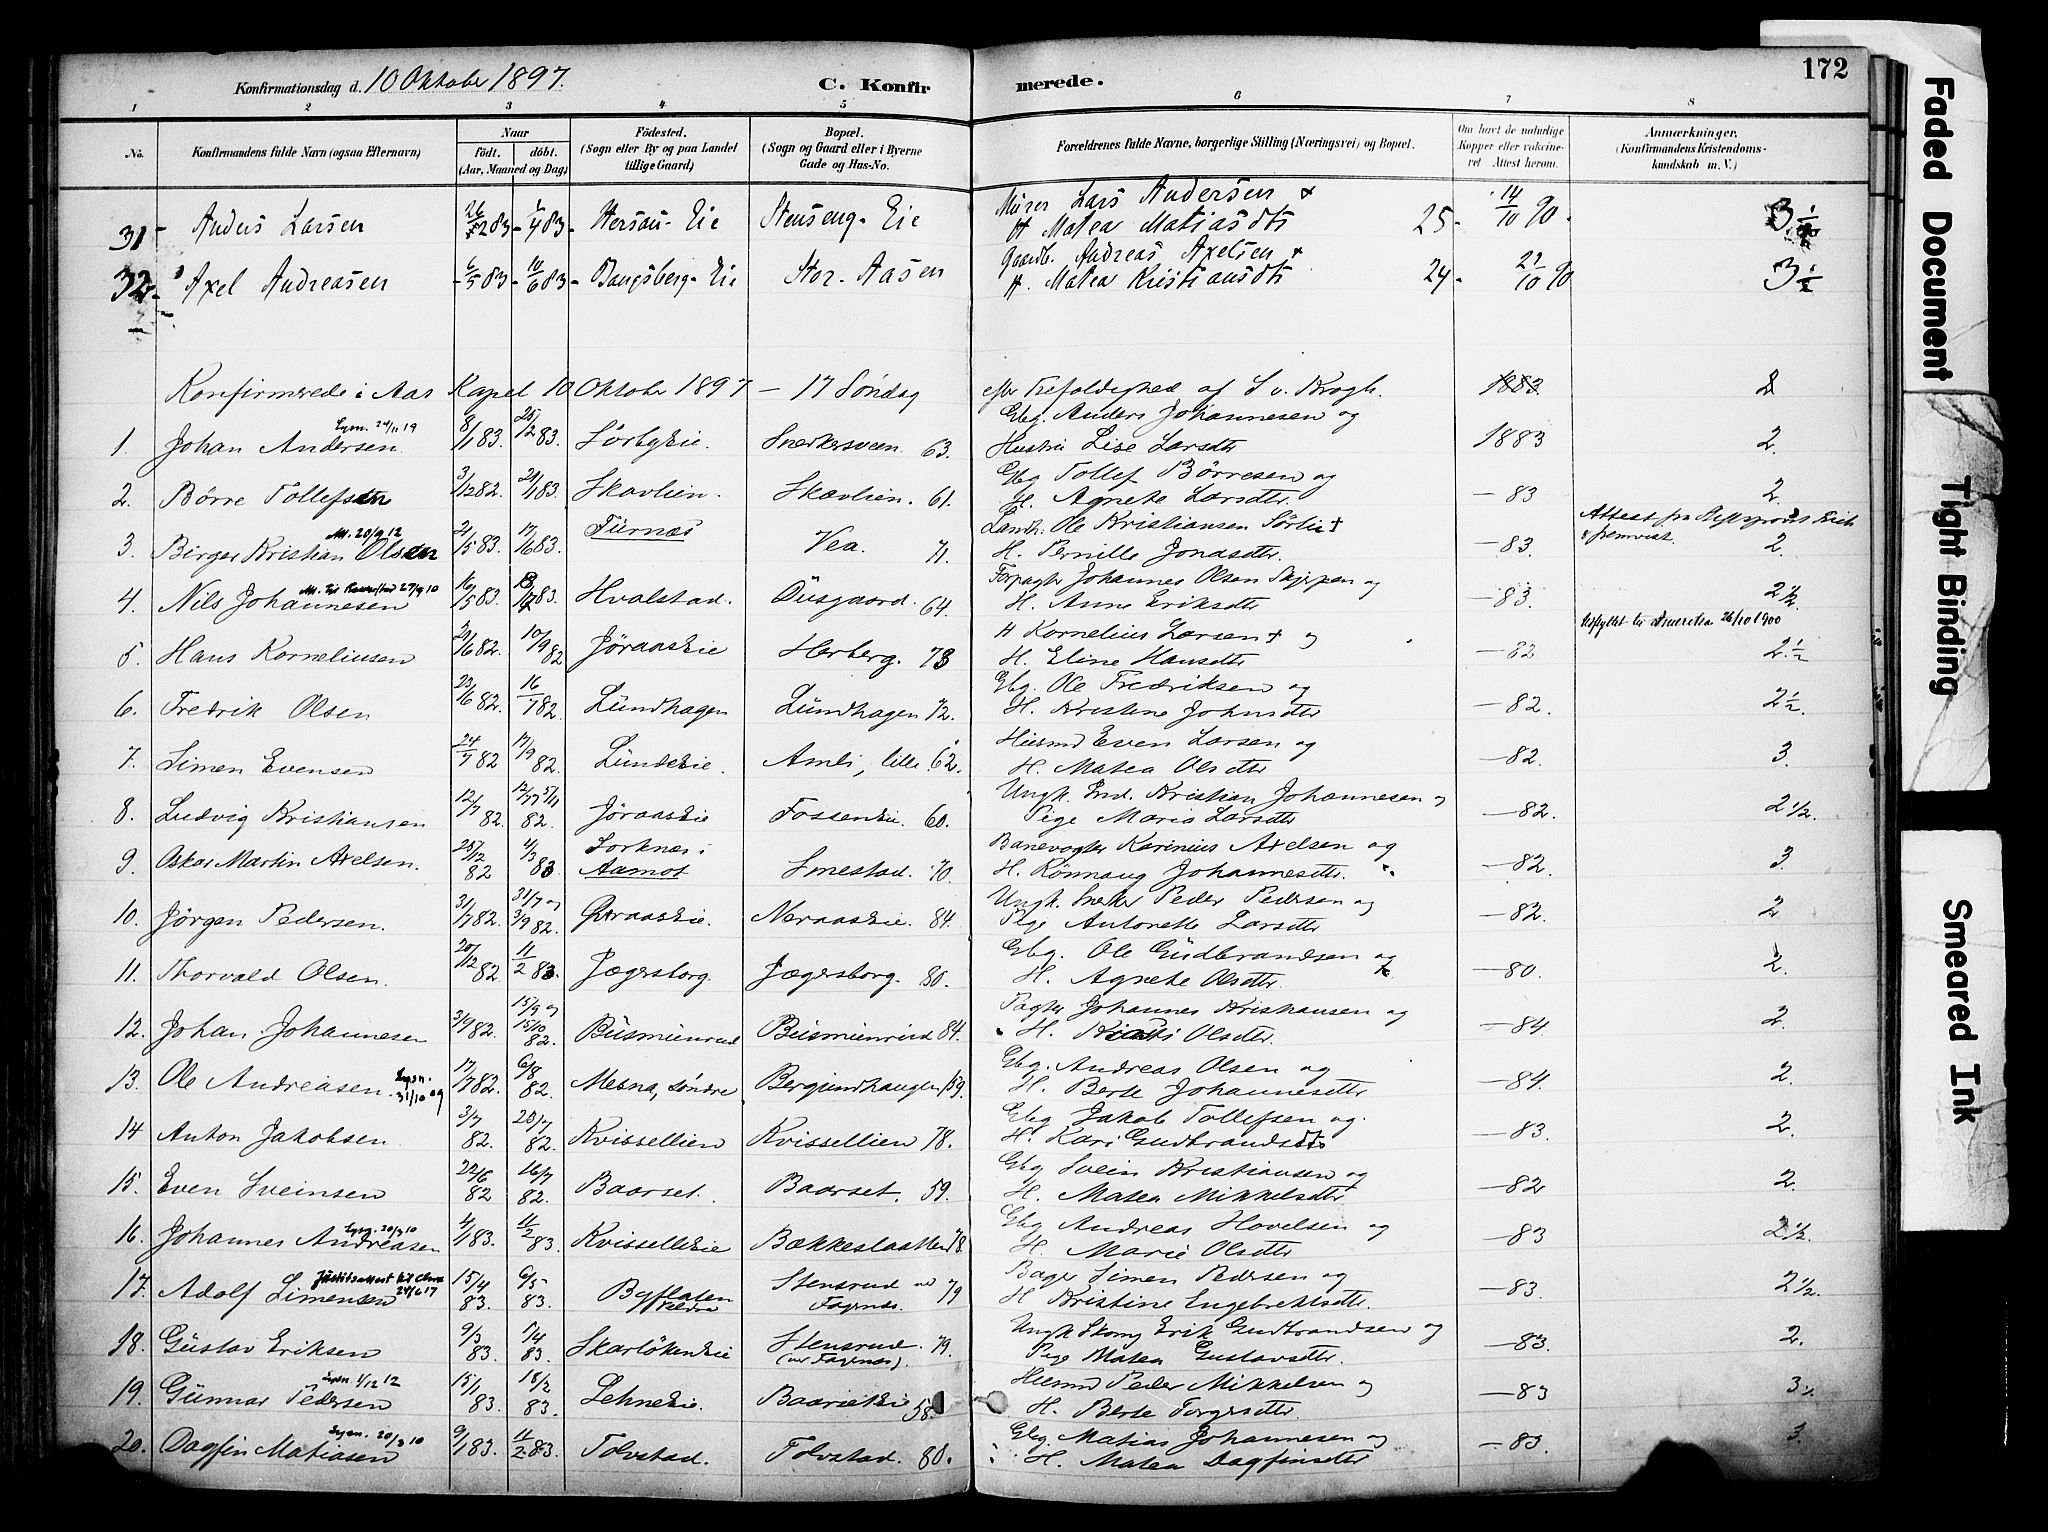 Konfirmationsdag d. 10 Oktober 1897. C. Konfirmerede. 172
1 2 3 4 5 6 7 8
No. Konfirmandens fulde Navn (ogsaa Efternavn) Naar født, døbt. (Aar, Maaned og Dag) Fødested. (Sogn eller By og paa Landet tillige Gaard) Bopæl. (Sogn og Gaard eller i Byerne Gade og Hus-No. Forældrenes fulde Navne, borgerlige Stilling (Næringsvei) og Bopæl. Om havt de naturlige Kopper eller vakcineret. Attest herom. Anmærkninger. (Konfirmandens Kristendomskundskab m. V.)
31 - Anders Larsen Hersau- Eie Stenseng- Eie Murer Lars Andersen +
H Matea Matiasdtr 25 - 14/10 90 - 3 1/2
32 - Axel Andreasen - 6/5 83 - 10/6 83 - Bangsberg- Eie Stor- Aasen Gaardb. Andreas Axelsen +
H. Matea Kristiansdtr 24 - 29/10 90 3 1/2
Konfirmerede i Aas Kapel 10 Oktober 1897 - 17 Søndag efter Trefoldighed af S v. Krogh. 1883
1. Johan Andersen. Lysn. 24/11 19 8/1 83. 25/2 83. Sörbyeie Snekkersveen 63. Gbg. Anders Johannesen og
Hustru Lise Larsdtr 1883 2.
2. Börre Tollefsen 3/12 82. 21/1 83. Skavlien. Skavlien. 61. Gbg Tollef Börresen og
H. Agnete Larsdtr - 83 2.
3. Birger Kristian Olsen Att. 20/9 12 21/5 83. 17/6 83. Furnæs Vea. 71. Landh. Ole Kristiansen Sörlie +
H. Pernille Jonasdtr. - 83. Attest fra fremvist. 2.
4. Nils Johannesen 27/9 10 16/5 83. 83. Hvalstad. Öusgaard. 64. Forpagter Johannes Olsen Skjeppen og
H. Anne Eriksdtr - 83. 2 1/2.
5. Hans Korneliusen 21/6 82. 10/9 82 Jöraaseie Herberg. 73 H Kornelius Larsen + og
H. Eline Hansdtr - 82 Udflyttet til Amerika 26/10 1900 2 1/2
6. Fredrik Olsen 23/6 82. 16/7 82. Lundhagen Lundhagen 72. Gbg. Ole Fredriksen og
H. Kristine Johnsdtr - 82. 2 1/2.
7. Simen Evensen 24/7 82 17/9 82. Lundeeie. Amli, lille. 62. Husmd Even Larsen og
H. Matea Olsdtr - 82. 3.
8. Ludvig Kristiansen 12/7 82. 82. Jöraaseie Fosseneie. 60. Ungk. Ind. Kristian Johannesen og
Pige Maria Larsdtr - 82. 2 1/2.
9. Oskar Martin Axelsen. 28/12 82 4/3 83 Torknæs i
Aamot Smestad. 70. Banevogter Karinius Axelsen og
H. Rönnaug Johannesdtr. - 82. 3.
10. Jörgen Pedersen. 31/7 82. 31/7 og 3/9 82. Öraaseie. Neraaseie. 84. Ungk. Snekker Peder Pedersen og
Pige Antonette Larsdtr - 82. 2
11. Thorvald Olsen. 20/12 82 11/2 83. Jægersborg. Jægersborg. 80. Gbg. Ole Gudbrandsen og
H. Agnete Olsdtr. - 80. 2.
12. Johan Johannesen 3/9 82. 15/9 og 15/10 82. Busmienrud Busmienrud 84. Pagter Johannes Kristiansen og
H. Kiersti Olsdtr. - 84. 2.
13. Ole Andreasen. Lysn. 31/10 09 17/7 82. 6/8 82. Mesna, söndre Berglundhaugen 59. Gbg. Andreas Olsen og
H. Berte Johannesdtr - 84. 2.
14 Anton Jakobsen 3/7 82. 20/7 82. Kvissellien Kvissellien 78. Gbg Jakob Tollefsen og
H. Kari Gudbrandsdtr - 83. 2.
15. Even Sveinsen 22/6 82 16/7 82. Baarset. Baarset. 59. Gbg Svein Kristiansen og
H. Matea Mikkelsdtr - 82 2.
16. Johannes Andreasen Lysn. 20/3 10 4/1 83. 11/2 83. Kvisselleie Bækkeslaatten 78. Gbg Andreas Hovelsen og
H. Marie Olsdtr - 83 2 1/2.
17. Adolf Simensen 24/6 17 15/4 83. 6/5 83. Byflaten
nedre Stensrud ved
Fagernæs. 79 Bager Simen Pedersen og
H Kristine Engebretsdtr. - 83. 2 1/2.
18. Gustav Eriksen 9/3 83. 1/4 83. Skarlökeneie Stensrud.
(ver Fagernæs). 79. Ungk Skom. Erik Gudbrandsen og
Pige Matea Gustavsdtr. - 83. 2.
19. Gunnar Pedersen Lysn. 1/12 12 15/1 83. 18/2 83. Lehneeie. Baarseteie 58. Husmd Peder Mikkelsen og
H. Berte Torgersdtr. - 83
20. Dagfin Matiasen Lysn. 20/3 10 9/1 83. 11/2 83. Tolvstad. Tolvstad. 80. Gbg. Matias Johannesen og
H. Matea Dagfinsdtr - 83. 3.
Faded Document
Tight Binding
Smeared Ink